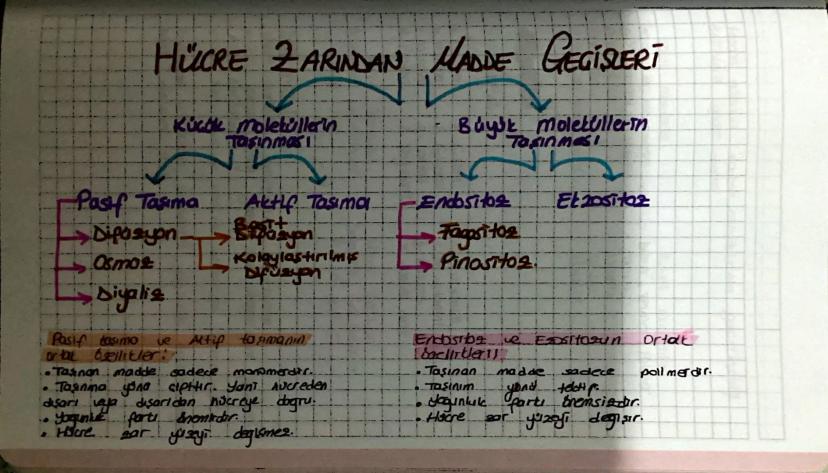 HÜCRE ZARINDAN MADDE GEÇİŞLERİ
Küçük moleküllerin
Taşınması
Büyük moleküllerin
Taşınması
Pasif Taşıma
Aktif Taşıma
Endositoz
Ekzositoz
Difüzyon
Basit
Difüzyon
Fagositoz
Osmoz
Kolaylaştırılmış
Difüzyon
Pinositoz.
Diyaliz
Pasif taşıma ve Aktif taşımanın
ortak özellikler:
• Taşınan madde sadece monomerdir.
• Taşınma yönü çifttir. Yani hücreden
dışarı veya dışarıdan hücreye doğru.
• Yoğunluk farkı önemlidir.
• Hücre zar yüzeyi değişmez.
Endositoz ve Ezositozun Ortak
özellikleri
• Taşınan madde sadece polimerdir.
• Taşınım yönü tektir.
• Yoğunluk farkı önemsizdir.
• Hücre zar yüzeyi değişir.